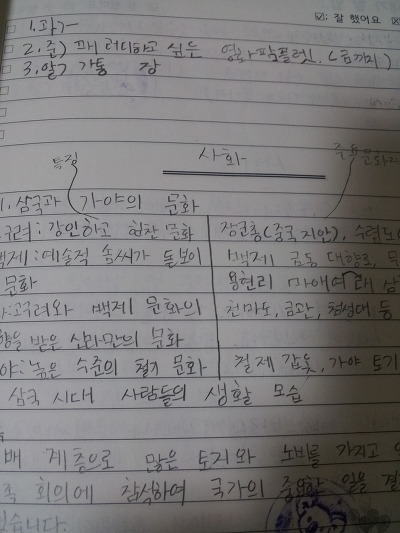 ☑: 잘 했어요
1. 과
2. 준) 패러디하고 싶은 영화팜플렛. (금까지)
3. 알) 가통 장
사회
특징
1. 삼국과 가야의 문화
구려: 강인하고 힘찬 문화 장군총(중국 지안), 수렵도
백제: 예술적 솜씨가 돋보이 백제 금동 대향로, 무
문화 용현리 마애여래 삼
라: 고구려와 백제 문화의 천마도, 금관, 첨성대 등
향을 받은 신라만의 문화
야: 높은 수준의 철기 문화 철제 갑옷, 가야 토기
삼국 시대 사람들의 생활 모습
배 계층으로 많은 토지와 노비를 가지고
족 회의에 참석하여 국가의 중요한 일을 결
습니다.